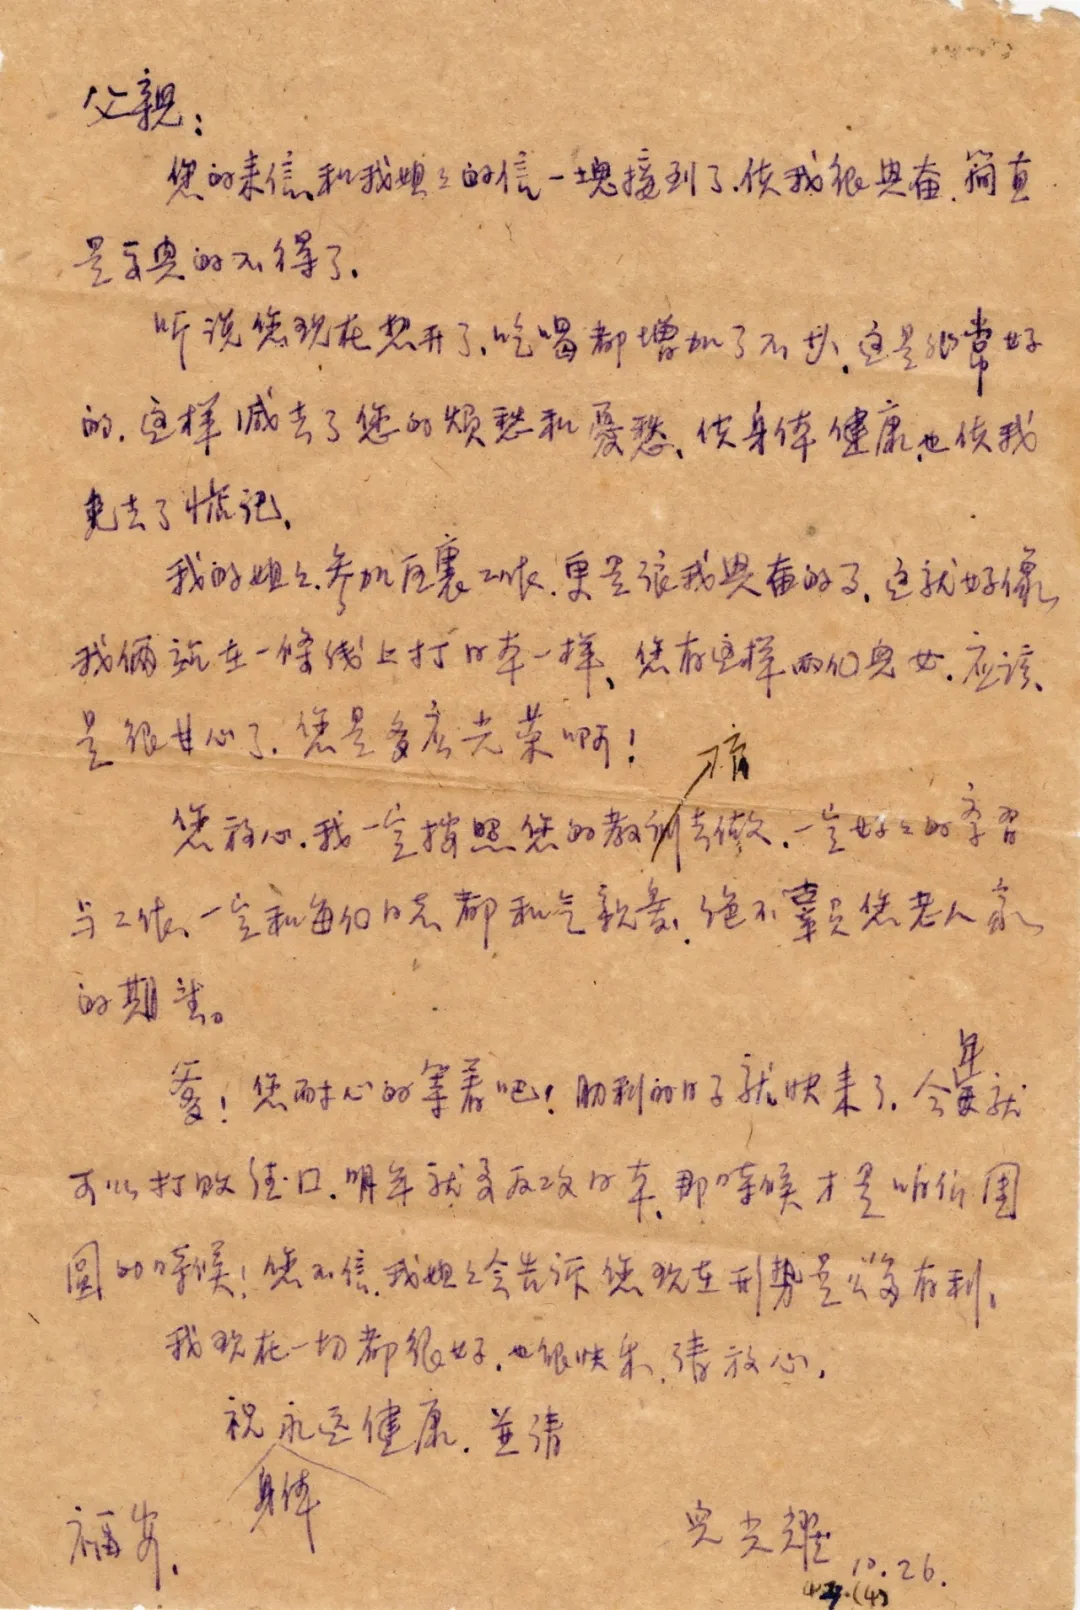 父親：
您的来信和我姐〻的信一塊接到了、使我很興奋、簡直
是高興的不得了、
听说您現在想开了、吃喝都增加了不少、这是非常好
的、这样减去了您的煩愁和憂愁、使身体健康、也使我
免去了惦记、
我的姐〻参加区裏工作、更是讓我興奋的了、这就好像
我俩站在一條线上打日本一样、您有这样两们兒女、应该
是很甘心了、您是多么光荣啊！
您放心、我一定按照您的教訓去做、一定好〻的学習
与工作、一定和每们同志都和气親爱、绝不辜負您老人家
的期望。
爹！您耐心的等着吧！勝利的日子就快来了、今年就
可以打败德国、明年就要反攻日本、那時候才是咱们團
圓的時候！您不信、我姐〻会告诉您現在形势是多有利、
我現在一切都很好、也很快乐、請放心、
祝永远健康、並請
身体
福安、
兒光耀
10.26.